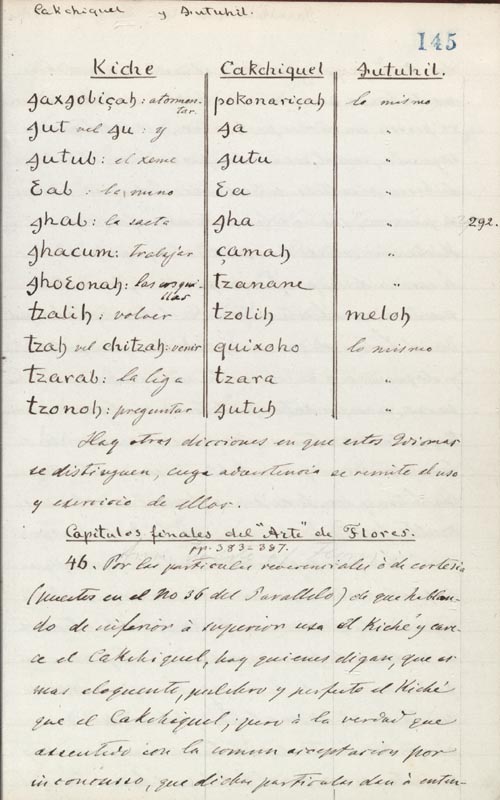 Cakchiquel y Ꜭutuhil.
145
Kiche Cakchiquel Ꜭutuhil.
ꜭaxꜭobiçaḥ: atormentar. pokonariçaḥ lo mismo
ꜭut vel ꜭu: y ꜭa "
ꜭutub: el xeme ꜭutu "
Ɛab: la mano Ɛa "
ꜭhab: la saeta ꜭha " 292.
ꜭhacum: trabajar çamaḥ "
ꜭhoƐonaḥ: las cosquillas tzanane "
tzaliḥ: volver tzoliḥ meloḥ
tzaḥ vel chitzaḥ: venir quixoho lo mismo
tzarab: la liga tzara "
tzonoḥ: preguntar ꜭutuḥ "
Hay otras dicciones en que estos Idiomas
se distinguen, cuya advertencia se remite al uso
y exercicio de ellos.
Capitulos finales del "Arte" de Flores.
pp. 383=387.
46. Por las particulas reverenciales ò de cortesia
(puestas en el No 36 del Parallelo) de que hablan-
do de inferior à superior usa el Kiché y care-
ce el Cakchiquel, hay quienes digan, que es
mas eloquente, pulchro y perfecto el Kiché
que el Cakchiquel; pero à la verdad que
assentido con la comun acceptacion por
inconcusso, que dichas particulas dan à enten-